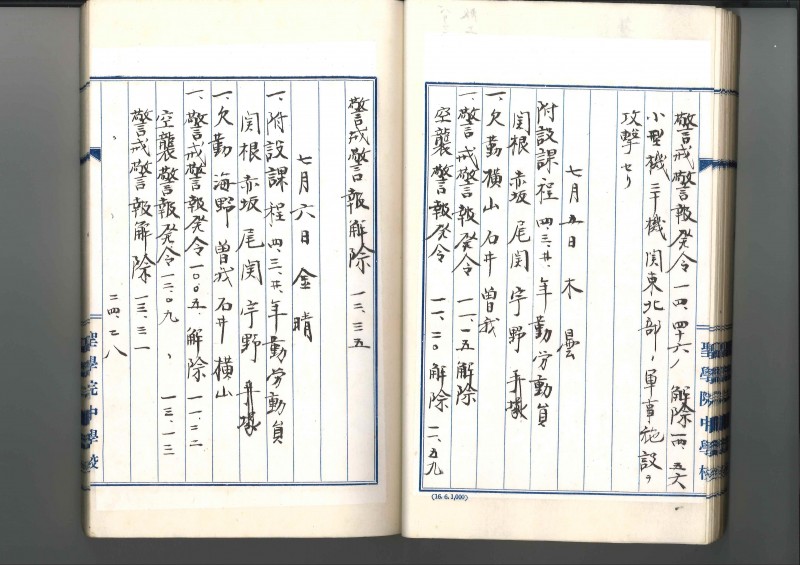 警戒警報発令 一四、四十六、 解除一四、五六
小型機三十機関東北部ノ軍事施設ヲ
攻撃セリ
七月五日 木 曇
附設課程 四、三、廾、年勤労動員
関根 赤坂 尾関 宇野
一、欠勤 横山 石井 曽我
一、警戒警報発令 一一、一五 解除
空襲警報発令 一一、二〇 解除 一一、五九
聖学院中学校
(16. 6. 1,000)
警戒警報解除 一二、三五
七月六日 金 晴
一、附設課程 四、三、廾、年勤労動員
関根 赤坂 尾関 宇野
一、欠勤 海野 曽我 石井 横山
一、警戒警報発令 一〇、〇五、解除 一一、三二
空襲警報発令 一二、〇九、 〃 一三、一三
警戒警報解除 一三、三一
〃 〃 二四、二八
聖学院中学校